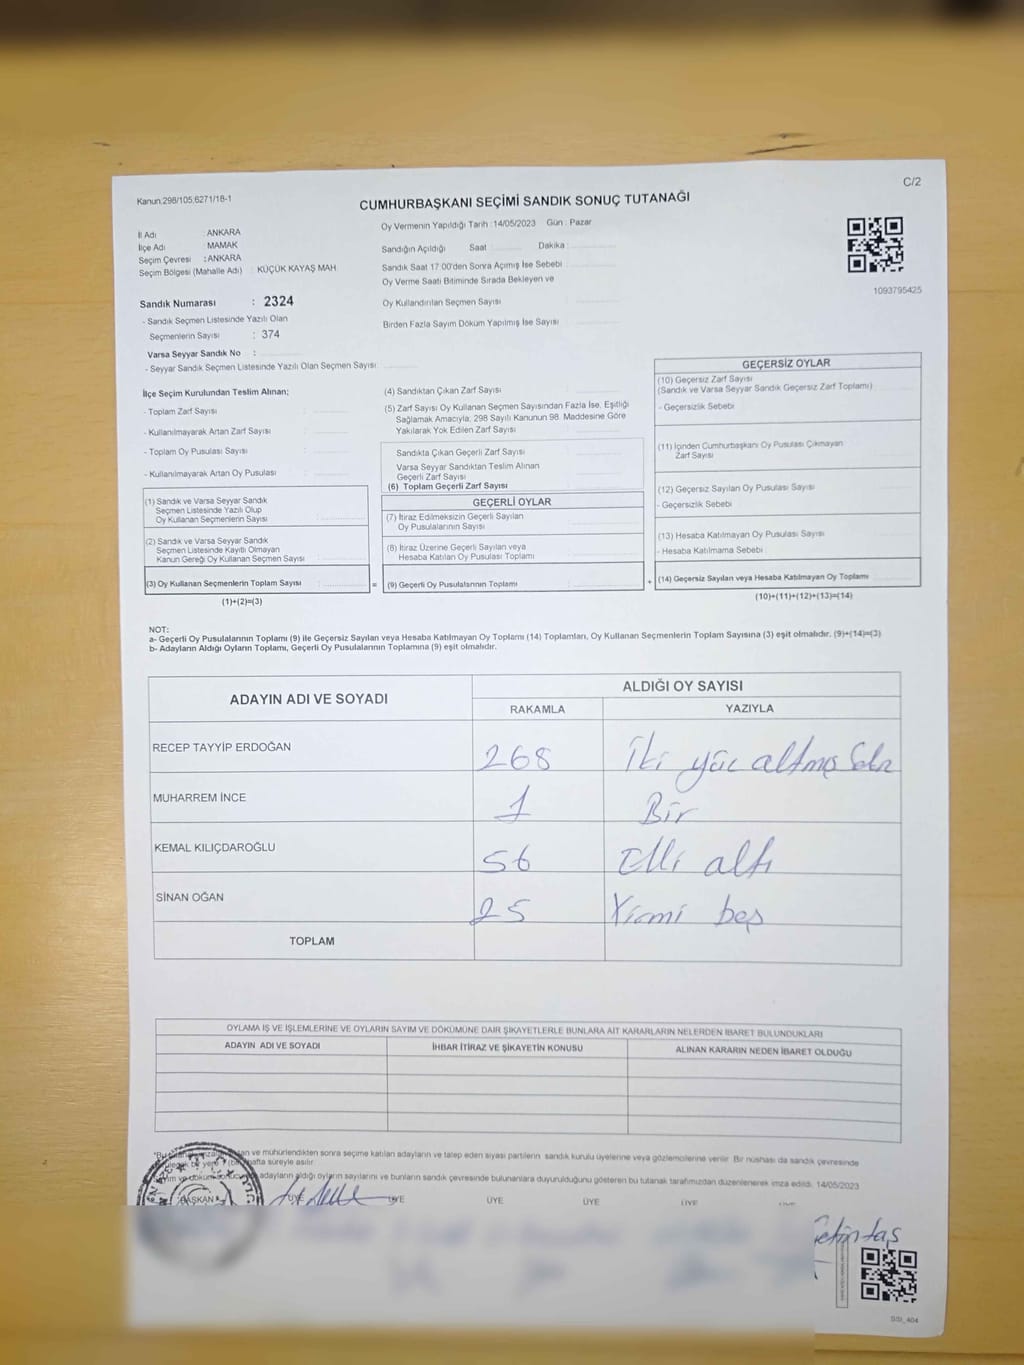 C/2
Kanun.298/105,6271/18-1
CUMHURBAŞKANI SEÇİMİ SANDIK SONUÇ TUTANAĞI
İl Adı : ANKARA
İlçe Adı : MAMAK
Seçim Çevresi : ANKARA
Seçim Bölgesi (Mahalle Adı) : KÜÇÜK KAYAŞ MAH
Sandık Numarası : 2324
- Sandık Seçmen Listesinde Yazılı Olan
Seçmenlerin Sayısı : 374
Varsa Seyyar Sandık No :
- Seyyar Sandık Seçmen Listesinde Yazılı Olan Seçmen Sayısı
Oy Vermenin Yapıldığı Tarih : 14/05/2023 Gün : Pazar
Sandığın Açıldığı Saat Dakika :
Sandık Saat 17:00'den Sonra Açımış İse Sebebi
Oy Verme Saati Bitiminde Sırada Bekleyen ve
Oy Kullandırılan Seçmen Sayısı
Birden Fazla Sayım Döküm Yapılmış İse Sayısı
1093795425
İlçe Seçim Kurulundan Teslim Alınan;
- Toplam Zarf Sayısı :
- Kullanılmayarak Artan Zarf Sayısı :
- Toplam Oy Pusulası Sayısı :
- Kullanılmayarak Artan Oy Pusulası :
(1) Sandık ve Varsa Seyyar Sandık
Seçmen Listesinde Yazılı Olup
Oy Kullanan Seçmenlerin Sayısı
(2) Sandık ve Varsa Seyyar Sandık
Seçmen Listesinde Kayıtlı Olmayan
Kanun Gereği Oy Kullanan Seçmen Sayısı
(3) Oy Kullanan Seçmenlerin Toplam Sayısı =
(1)+(2)=(3)
(4) Sandıktan Çıkan Zarf Sayısı
(5) Zarf Sayısı Oy Kullanan Seçmen Sayısından Fazla İse, Eşitliği
Sağlamak Amacıyla, 298 Sayılı Kanunun 98. Maddesine Göre
Yakılarak Yok Edilen Zarf Sayısı
Sandıkta Çıkan Geçerli Zarf Sayısı
Varsa Seyyar Sandıktan Teslim Alınan
Geçerli Zarf Sayısı
(6) Toplam Geçerli Zarf Sayısı
GEÇERLİ OYLAR
(7) İtiraz Edilmeksizin Geçerli Sayılan
Oy Pusulalarının Sayısı
(8) İtiraz Üzerine Geçerli Sayılan veya
Hesaba Katılan Oy Pusulası Toplamı
(9) Geçerli Oy Pusulalarının Toplamı +
GEÇERSİZ OYLAR
(10) Geçersiz Zarf Sayısı
(Sandık ve Varsa Seyyar Sandık Geçersiz Zarf Toplamı)
- Geçersizlik Sebebi
(11) İçinden Cumhurbaşkanı Oy Pusulası Çıkmayan
Zarf Sayısı
(12) Geçersiz Sayılan Oy Pusulası Sayısı
- Geçersizlik Sebebi
(13) Hesaba Katılmayan Oy Pusulası Sayısı
- Hesaba Katılmama Sebebi
(14) Geçersiz Sayılan veya Hesaba Katılmayan Oy Toplamı
(10)+(11)+(12)+(13)=(14)
NOT:
a- Geçerli Oy Pusulalarının Toplamı (9) ile Geçersiz Sayılan veya Hesaba Katılmayan Oy Toplamı (14) Toplamları, Oy Kullanan Seçmenlerin Toplam Sayısına (3) eşit olmalıdır. (9)+(14)=(3)
b- Adayların Aldığı Oyların Toplamı, Geçerli Oy Pusulalarının Toplamına (9) eşit olmalıdır.
ADAYIN ADI VE SOYADI ALDIĞI OY SAYISI
RAKAMLA YAZIYLA
RECEP TAYYİP ERDOĞAN 268 İki yüz altmış
MUHARREM İNCE 1 Bir
KEMAL KILIÇDAROĞLU 56 Elli altı
SİNAN OĞAN 25 Yirmi beş
TOPLAM
OYLAMA İŞ VE İŞLEMLERİNE VE OYLARIN SAYIM VE DÖKÜMÜNE DAİR ŞİKAYETLERLE BUNLARA AİT KARARLARIN NELERDEN İBARET BULUNDUKLARI
ADAYIN ADI VE SOYADI İHBAR İTİRAZ VE ŞİKAYETİN KONUSU ALINAN KARARIN NEDEN İBARET OLDUĞU
ve mühürlendikten sonra seçime katılan adayların ve talep eden siyasi partilerin sandık kurulu üyelerine veya gözlemcilerine verilir. Bir nüshası da sandık çevresinde
hafta süreyle asılır.
adayların aldığı oyların sayılarını ve bunların sandık çevresinde bulunanlara duyurulduğunu gösteren bu tutanak tarafımızdan düzenlenerek imza edildi. 14/05/2023
BAŞKAN ÜYE ÜYE ÜYE ÜYE ÜYE
SSI_404